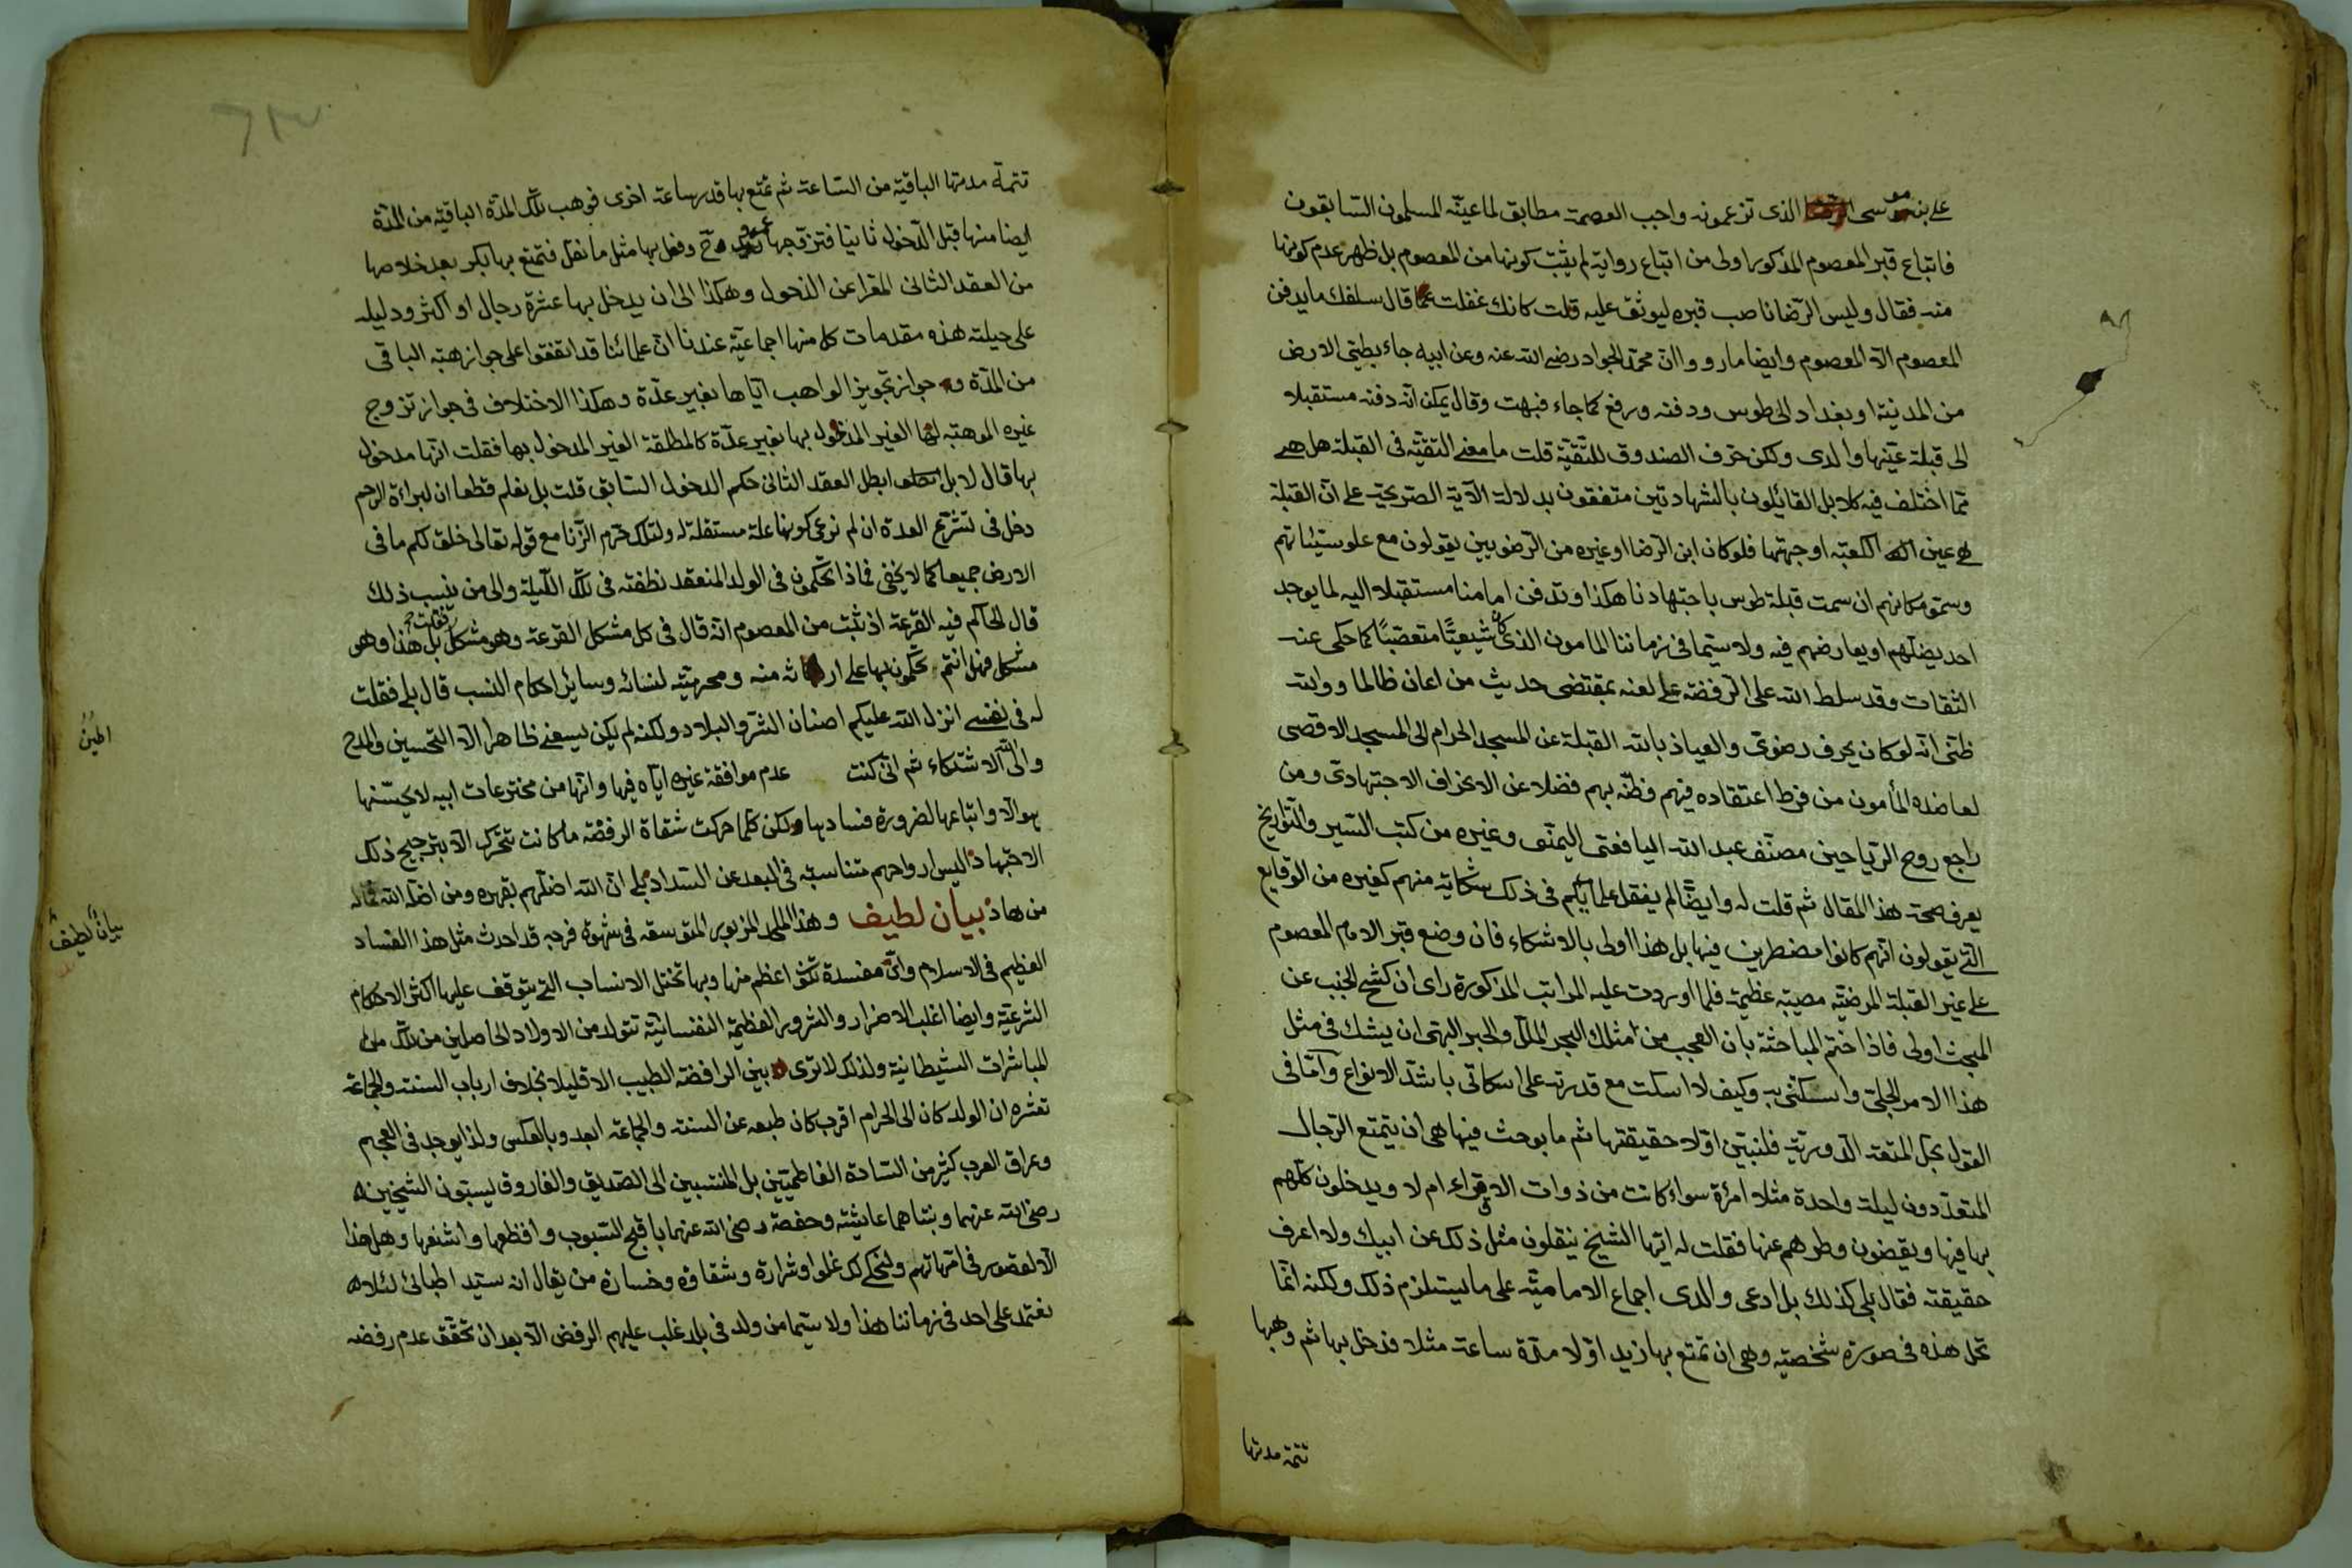 على بن موسى الرضا الذى تزعمونه واجب العصمة مطابق لما عينه المسلمون السابقون
فاتباع قبر المعصوم المذكور اولى من اتباع رواية لم يثبت كونها من المعصوم بل ظهر عدم كونها
منه فقال وليس الرضا ناصب قبره ليوثق عليه قلت كانك غفلت عما قال سلفك ما يدفن
المعصوم الا المعصوم وايضا ما رووا ان محمد الجواد رضى الله عنه وعن ابيه جاء بطى الارض
من المدينة او بغداد الى طوس ودفنه ورفع كما جاء فبهت وقال يمكن انه دفنه مستقبلا
الى قبلة عينها والدى ولكن حرف الصندوق للتقية قلت ما معنى التقية فى القبلة هل هى
مما اختلف فيه كلا بل القائلون بالشهادتين متفقون بدلالة الآية الصريحة على ان القبلة
هى عين الكعبة او جهتها فلو كان ابن الرضا او غيره من الرضويين يقولون مع علو سيئاتهم
وسمو مكانهم ان سمت قبلة طوس باجتهادنا هكذا وندفن امامنا مستقبلا اليه لما يوجد
احد يضلهم او يعارضهم فيه ولا سيما فى زماننا المامون الذى كان شيعيًا متعصبًا كما حكى عنه
الثقات وقد سلط الله على الرفضة على لعنه بمقتضى حديث من اعان ظالما ووالله
ظنى انه لو كان يحرف رضوى والعياذ بالله القبلة عن المسجد الحرام الى المسجد الاقصى
لعاضده المأمون من فرط اعتقاده فيهم فظنه بهم فضلا عن الانحراف الاجتهادى ومن
راجع روح الرياحين مصنف عبد الله اليافعى اليمنى وغيره من كتب السير والتواريخ
يعرف صحة هذا المقال ثم قلت له وايضًا لم يفعل علمايكم فى ذلك شكاية منهم كغيره من الوقايع
التى يقولون انهم كانوا مضطرين فيها بل هذا اولى بالاشكاء فان وضع قبر الامام المعصوم
على غير القبلة المرضية مصيبة عظيمة فلما اوردت عليه المراتب المذكورة راى ان كشح الجنب عن
المبحث اولى فاذا ختم المباحثة بان العجب من امثلك البحر الملل والحبر البهى ان يشك فى مثل
هذا الامر الجلى واسكتنى به وكيف لا اسكت مع قدرته على اسكاتى باشد الانواع وأما فى
القول بحل المتعة الدورية فلنبين اولا حقيقتها ثم ما بوحث فيها هى ان يتمتع الرجال
المتعددون ليلة واحدة مثلا امرأة سواء كانت من ذوات الاقراء ام لا ويدخلون كلهم
بها فيها ويقضون وطرهم عنها فقلت له ايها الشيخ ينقلون مثل ذلك عن ابيك ولا اعرف
حقيقته فقال بلى كذلك بل ادعى والدى اجماع الامامية على ما يستلزم ذلك ولكنه انما
تحل هذه فى صورة شخصية وهى ان تمتع بها زيد اولا مدة ساعة مثلا فدخل بها ثم وهبها
تتمة مدتها
تتمة مدتها الباقية من الساعة ثم تمتع بها قدر ساعة اخرى فوهب تلك المدة الباقية من المدة
ايضا منها قبل الدخول ثانيا فتزوجها عمرو ح وفعل بها مثل ما نقل فتمتع بها بكر بعد خلاصها
من العقد الثانى المقرا عن الدخول وهكذا الى ان يدخل بها عشرة رجال او اكثر ودليله
على حيلته هذه مقدمات كل منها اجماعية عندنا ان علمائنا قد اتفقوا على جواز هبة الباقى
من المدة و جواز تجويز الواهب اياها بغير عدة وهكذا الاختلاف فى جواز تزوج
غيره الموهبة لها الغير المدخول بها بغير عدة كالمطلقة الغير المدخول بها فقلت انها مدخول
بها قال لا بل ابطل العقد الثانى حكم الدخول السابق قلت بل نعلم قطعا ان لبراءة الرحم
دخل فى تشريع العدة ان لم نوع كونها علة مستقلة له ولتلك حرم الزنا مع قوله تعالى خلق لكم ما فى
الارض جميعا كما لا يخفى فماذا تحكمون فى الولد المنعقد نطفته فى تلك الليلة والى من ينسب ذلك
قال الحاكم فيه القرعة اذ ثبت من المعصوم انه قال فى كل مشكل القرعة وهو مشكل فقلت بل هذا وهو
مشكل فهل انتم تحكمون بها على ارثه منه ومحرميته لنسائه وساير احكام النسب قال بلى فقلت
له فى نفسى انزل الله عليكم اصنان الشر والبلاد ولكنه لم يكن يسعنى ظاهرا الا التحسين والمدح
والى الله الاشتكاء ثم انى كنت عدم موافقة غيره اياه فيها وانها من مخترعات ابيه لا يحسنها
هو الا واتباعها لضرورة فسادها ولكن كلما حركت شقاة الرفضة ما كانت تتحرك الا بترجيح ذلك
الاجتهاد اليس ارواحهم متناسبة فى البعد عن السداد بلى ان الله اضلهم بقهره ومن اضله الله فما له
من هاد بيان لطيف وهذا الملحد المزبور المتوسقه فى شهوة فرجه قد احدث مثل هذا الفساد
العظيم فى الاسلام واى مفسدة تكون اعظم منها وبها تختل الانساب التى يتوقف عليها اكثر الاحكام
الشرعية وايضا اغلب الاضرار والشرور العظيمة النفسانية تتولد من الاولاد الحاصلين من تلك
المباشرات الشيطانية ولذلك لا ترى بين الرافضة الطيب الا قليلا بخلاف ارباب السنة والجماعة
تعثره ان الولد كان الى الحرام اقرب كان طبعه عن السنة والجماعة ابعد وبالعكس ولذا يوجد فى العجم
وعراق العرب كثير من السادة الفاطميين بل المنتسبين الى الصديق والفاروق يسبون الشيخين
رضى الله عنهما وبنتاهما عايشة وحفصة رضى الله عنهما باقبح السبوب وافظعها واشنعها وهل هذا
الا لقصور فى امهاتهم ولنحكى لك غلوا وشرارة وشقاوة وخسارة من يقال انه سيد اطبائى لئلا
تعتمد على احد فى زماننا هذا ولا سيما من ولد فى بلد غلب عليهم الرفض الا بعد ان تحقق عدم رفضه
بيان لطيف